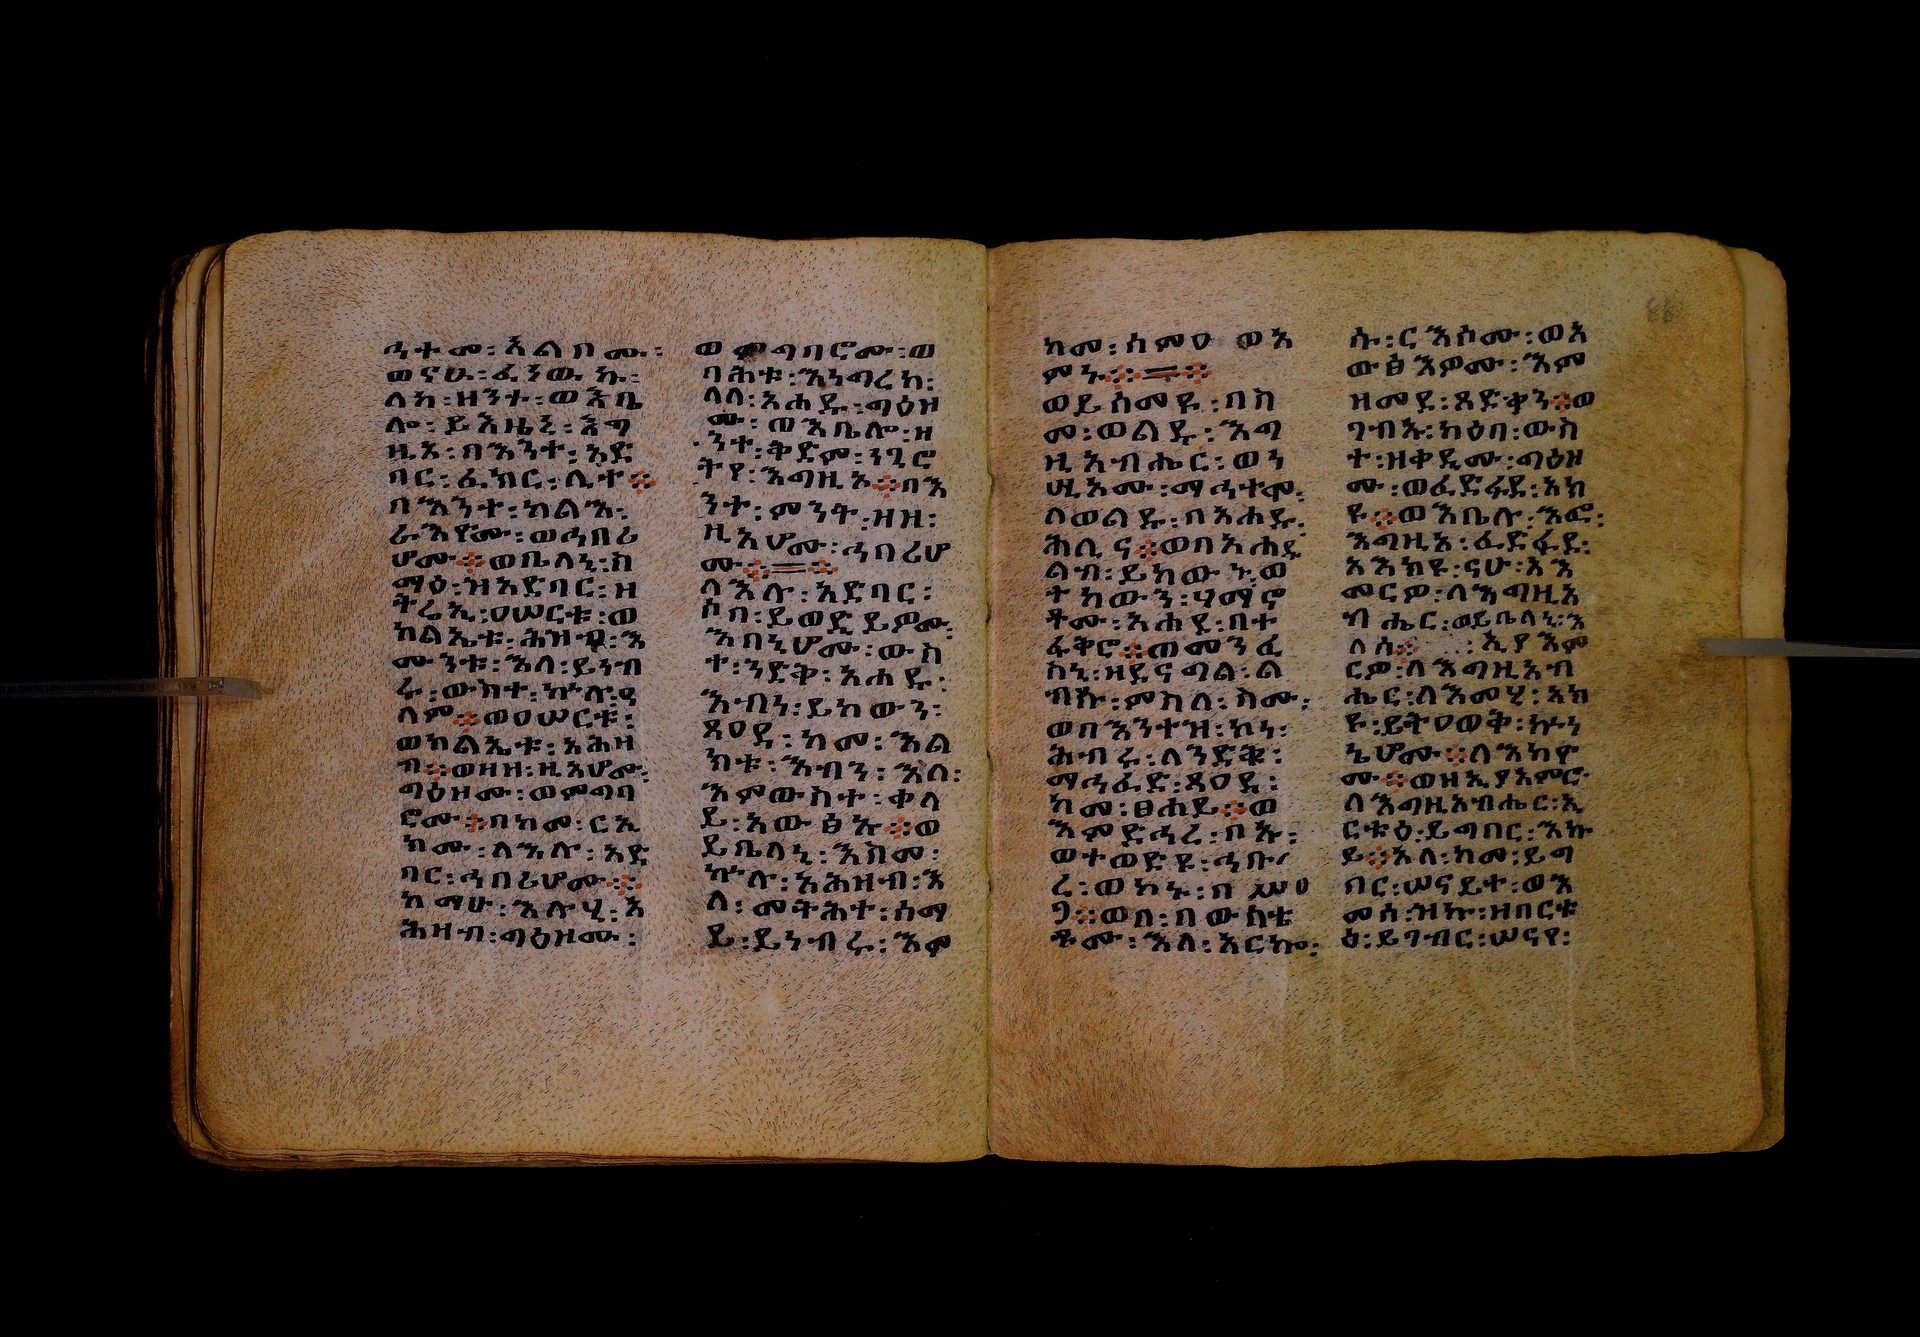 ኅተመ፡ አልበሙ፡
ወናሁ፡ ፈነውኩ፡
ለከ፡ዘንተ፡ወእቤ
ሎ፡ ይእዜኒ፡ እግ
ዚእ፡በእንተ፡አድ
ባር፡ፈክር፡ሊተ።
በእንተ፡ከልእ፡
ራእየሙ፡ወኅበሪ
ሆሙ።ወቤለኒ፡ስ
ማዕ፡ዝአድባር፡ዘ
ትሬኢ፡ዐሠርቱ፡ወ
ክልኤቱ፡ሕዝብ፡እ
ሙንቱ፡እለ፡ይነብ
ሩ፡ውስተ፡ኵሉ፡ዓ
ለም።ወዐሠርቱ፡
ወክልኤቱ፡አሕዛ
ብ።ወዘዘ፡ዚአሆሙ፡
ግዕዘሙ፡ወምግባ
ሮሙ።በከመ፡ርኢ
ክሙ፡ለእሉ፡አድ
ባር፡ኅበሪሆሙ።
ከማሁ፡እሉሂ፡አ
ሕዛብ፡ግዕዞሙ፡
ወምግባሮሙ፡ወ
ባሕቱ፡እነግረከ፡
ለለ፡አሐዱ፡ግዕዞ
ሙ፡ወእቤሎ፡ዘ
ንተ፡ቅድም፡ንግሮ
ትየ፡እግዚኦ።በእ
ንተ፡ምንት፡ዘዘ፡
ዚአሆሙ፡ኅበሪሆ
ሙ።=።
ለእሉ፡አድባር፡
ሶበ፡ይወዲይዎሙ፡
እበኒሆሙ፡ውስ
ተ፡ንድቅ፡አሐዱ፡
እብነ፡ይከውን፡
ጸዐዳ፡ከመ፡እል
ክቱ፡እብን፡እለ፡
እምውስተ፡ቀላ
ይ፡አውፅኡ።ወ
ይቤለኒ፡እስመ፡
ኵሉ፡አሕዛብ፡እ
ለ፡መትሕተ፡ሰማ
ይ፡ይነብሩ፡እም
ከመ፡ሰምዐ ወአ
ምኑ።=።
ወይሰመዩ፡በስ
መ፡ወልዱ፡እግ
ዚአብሔር፡ወነ
ሢኦሙ፡ማኅተሞ፡
ለወልዱ፡በአሐዱ፡
ሕሊና።ወበአሐዱ
ልብ፡ይከውኑ፡ወ
ተከውን፡ሃማኖ
ቶሙ፡አሐዱ፡በተ
ፋቅሮ።ጠመንፈ
ስኒ፡ዘደናግል፡ል
ብሱ፡ምስለ፡ስሙ፡
ወበእንተዝ፡ኮነ፡
ሕብሩ፡ለንድቁ፡
ማኅፈድ፡ጸዐዳ፡
ከመ፡ፀሐይ።ወ
እምድኅረ፡ቦኡ፡
ወተወድዩ፡ኅቡ
ረ፡ወኮኑ፡በ ሥዐ
ጋ።ወበ፡በውስቴ
ቶሙ፡እለ፡አርኰ፡
ሱ፡ርእሶሙ፡ወአ
ውፅእዎሙ፡እም
ዘመደ፡ጻድቃን።ወ
ገብኡ፡ከዕበ፡ውስ
ተ፡ዘቀዲሙ፡ግዕዞ
ሙ፡ወፈድፋደ፡አክ
ዩ።ወእቤሎ፡እፎ፡
እግዚእ፡ፈድፋደ፡
አእከዩ፡ናሁ፡አእ
መርዎ፡ለእግዚአ
ብሔር፡ወይቤለኒ፡እ
ለሰ። ፡ኢያእም
ርዎ፡ለእግዚአብ
ሔር፡ለእመሂ፡አክ
ዩ፡ይትዐወቅ፡ኵነ
ኔሆሙ።ለእከዮ
ሙ።ወዘኢያእምሮ
ለእግዚአብሔር፡ኢ
ርቱዕ፡ይግበር፡እኩ
ይ።አለ፡ከመ፡ይግ
በር፡ሠናይተ፡ወእ
መሰ፡ዝኩ፡ዘበርቱ
ዕ፡ይገብር፡ሠናየ፡